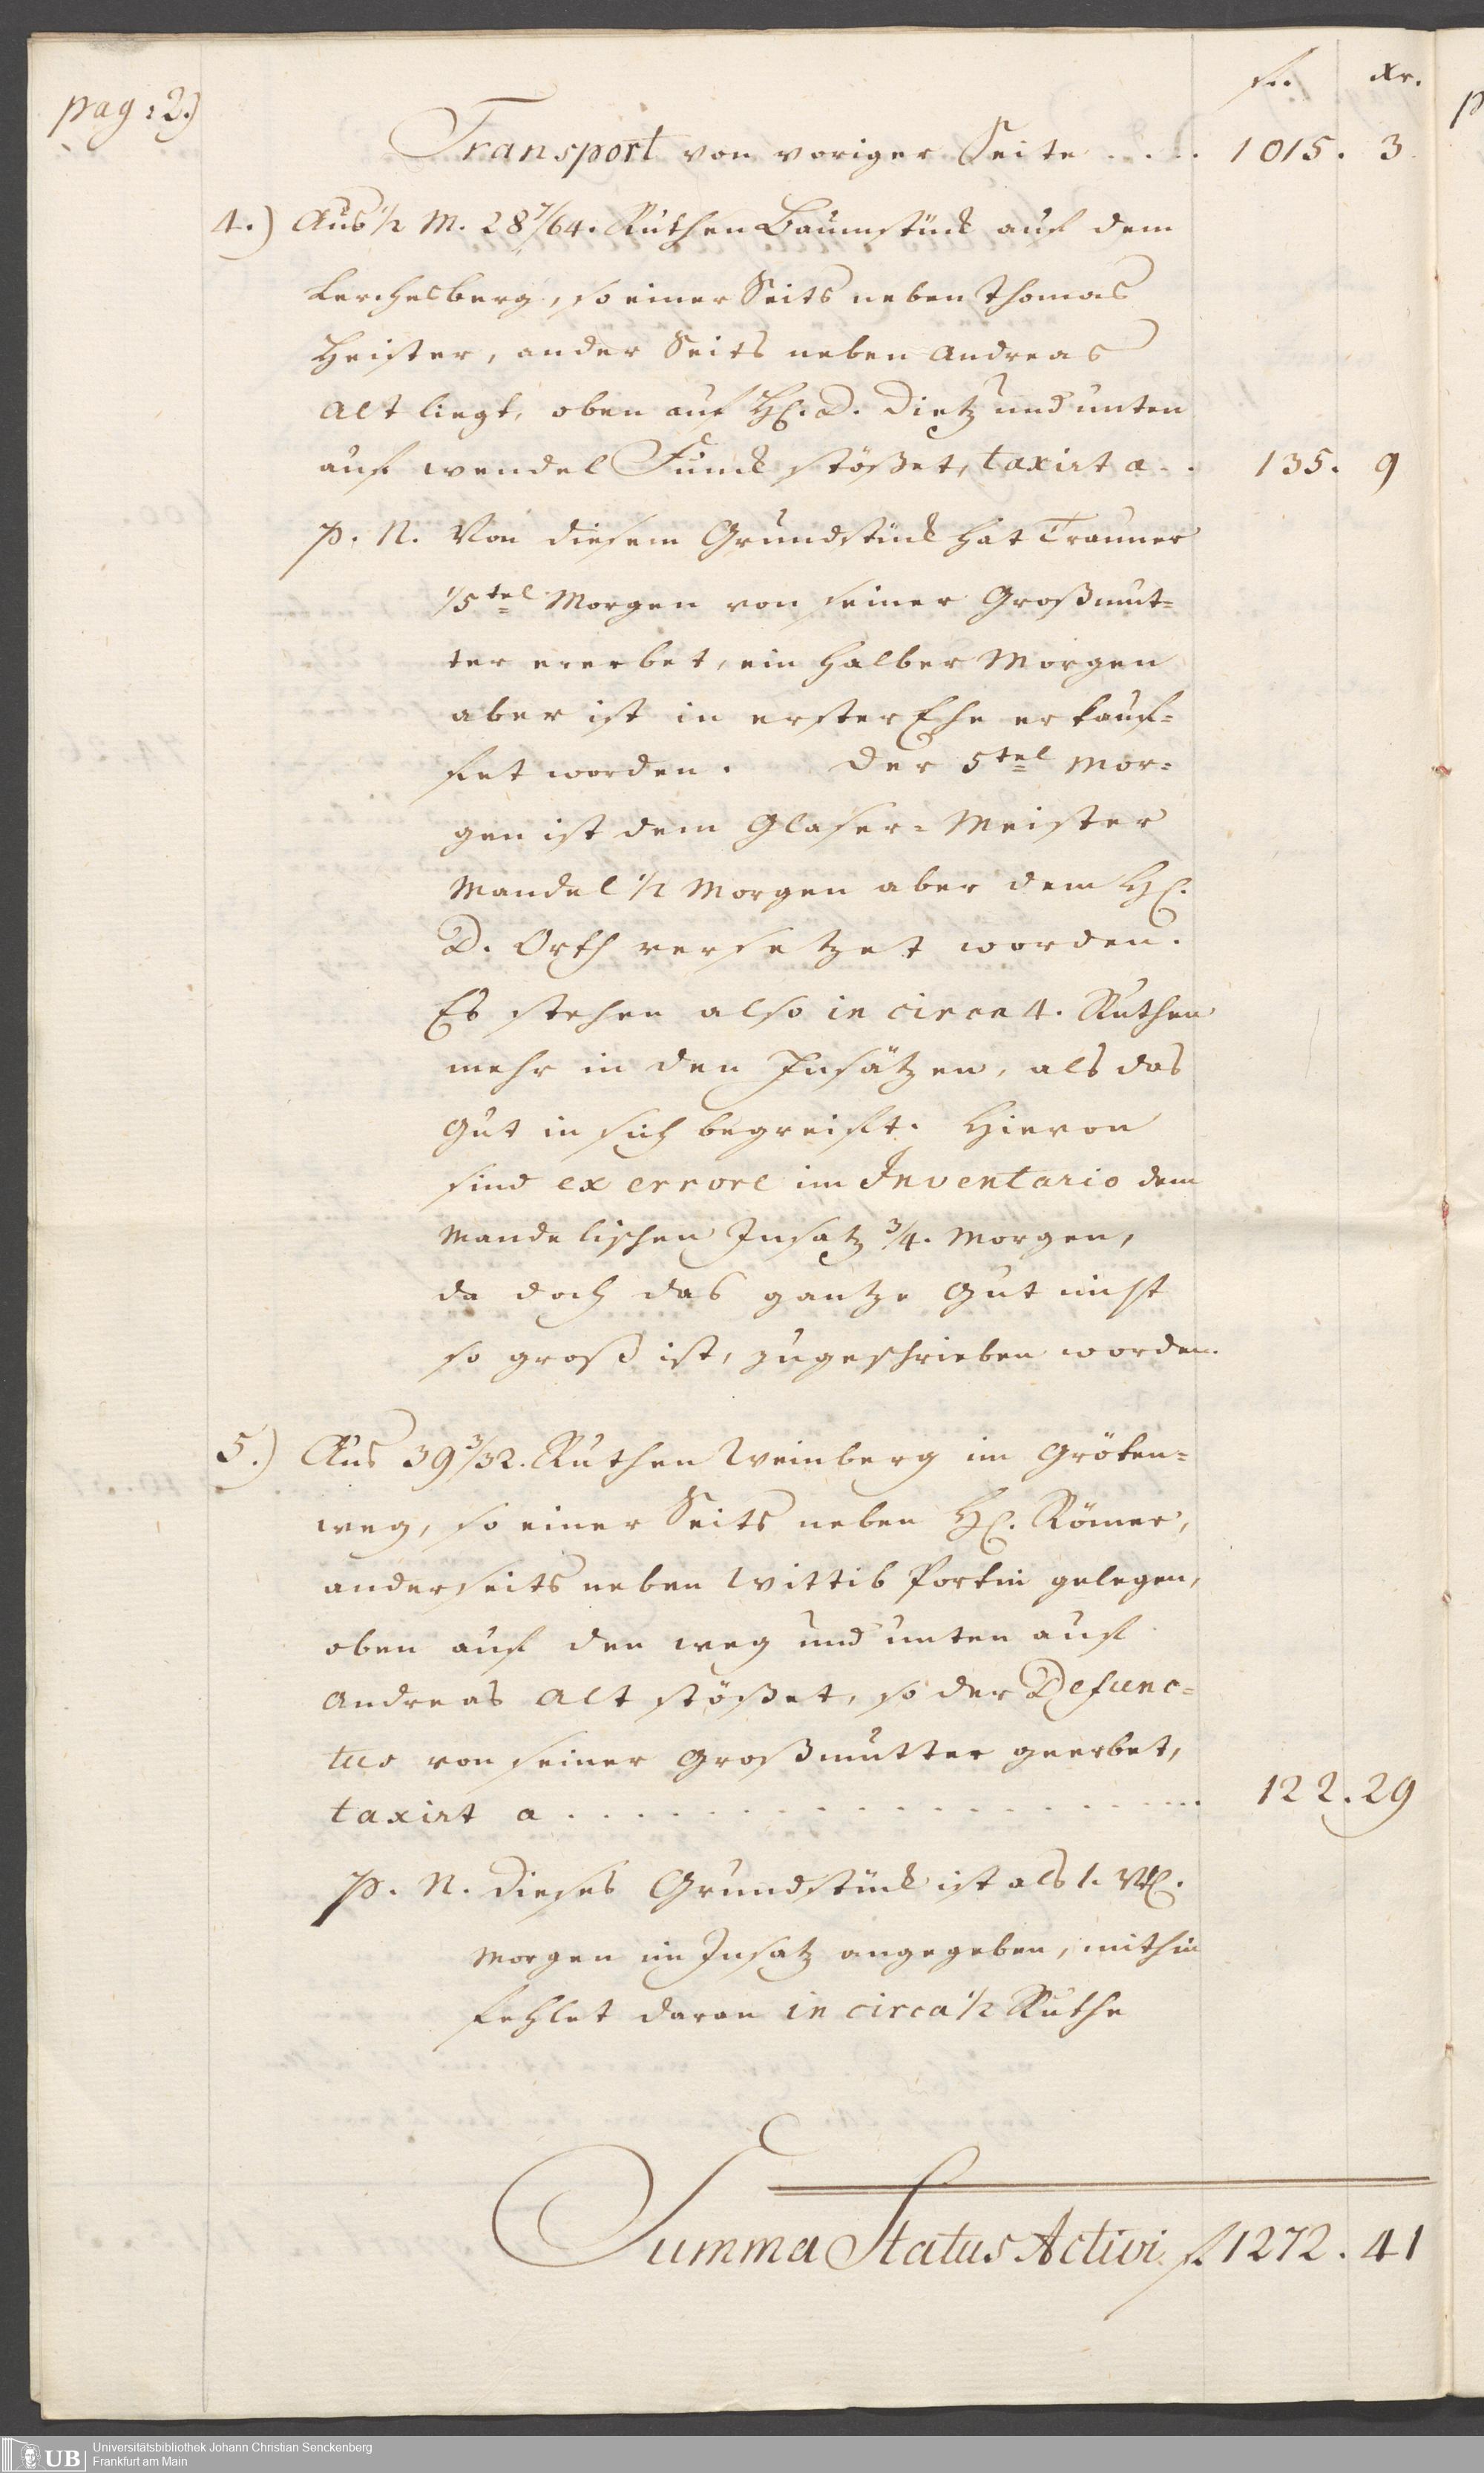 pag: 2.)
fl. xr.
Transport von voriger Seite . . . . 1015. 3.
4.) Aus 1/2 M. 28 7/64. Ruthen Baumstück auf dem
Lerchesberg, so einer Seits neben Thomas
Heister, ander Seits neben Andreas
Alt liegt, oben auf H. D. Dietz und unten
auf Wendel Funck stößet, taxirt a . . 135. 9
P. N. Von diesem Grundstück hat Trauner
1/5tel Morgen von seiner Großmut=
ter ererbet, ein halber Morgen
aber ist in erster Ehe erkauf=
fet worden. Der 5tel Mor=
gen ist dem Glaser=Meister
Mandel 1/2 Morgen aber dem H.
D. Orth versetzet worden.
Es stehen also in circa 4. Ruthen
mehr in den Insätzen, als das
Gut in sich begreift. Hievon
sind ex errore im Inventario dem
Mandelischen Insatz 3/4. Morgen,
da doch das gantze Gut nicht
so groß ist, zugeschrieben worden.
5.) Aus 39 3/32. Ruthen Weinberg im Gröten=
weg, so einer Seits neben H. Römer,
anderseits neben Wittib Portin gelegen,
oben auf den Weg und unten auf
Andreas Alt stößet, so der Defunc=
tus von seiner Großmutter geerbet,
taxirt a . . . . . . . . . . . . . . . . 122. 29
P. N. Dieses Grundstück ist als 1. Vtl.
Morgen im Insatz angegeben, mithin
fehlet daran in circa 1/2 Ruthe
Summa Status Activi fl. 1272. 41
UB
Universitätsbibliothek Johann Christian Senckenberg
Frankfurt am Main